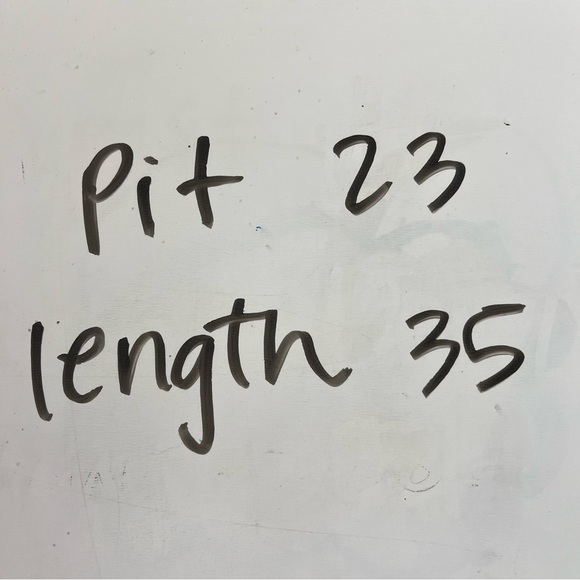 pit 23
length 35